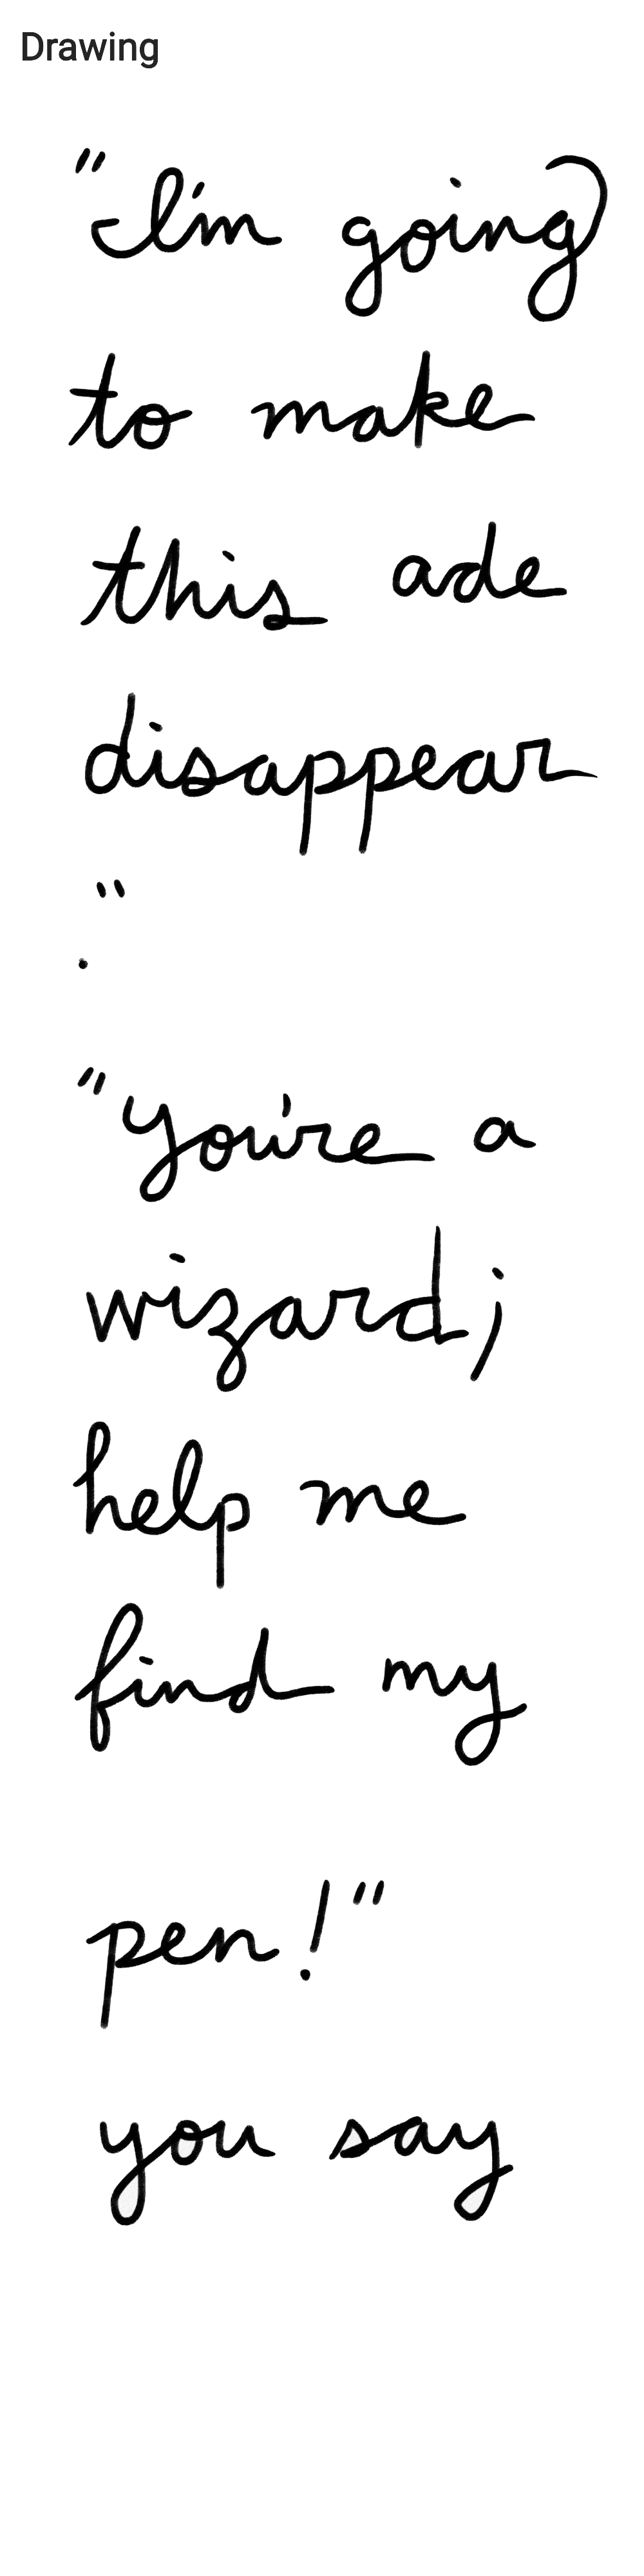 Drawing
"I'm going
to make
this ade
disappear
."
"You're a
wizard;
help me
find my
pen!"
you say